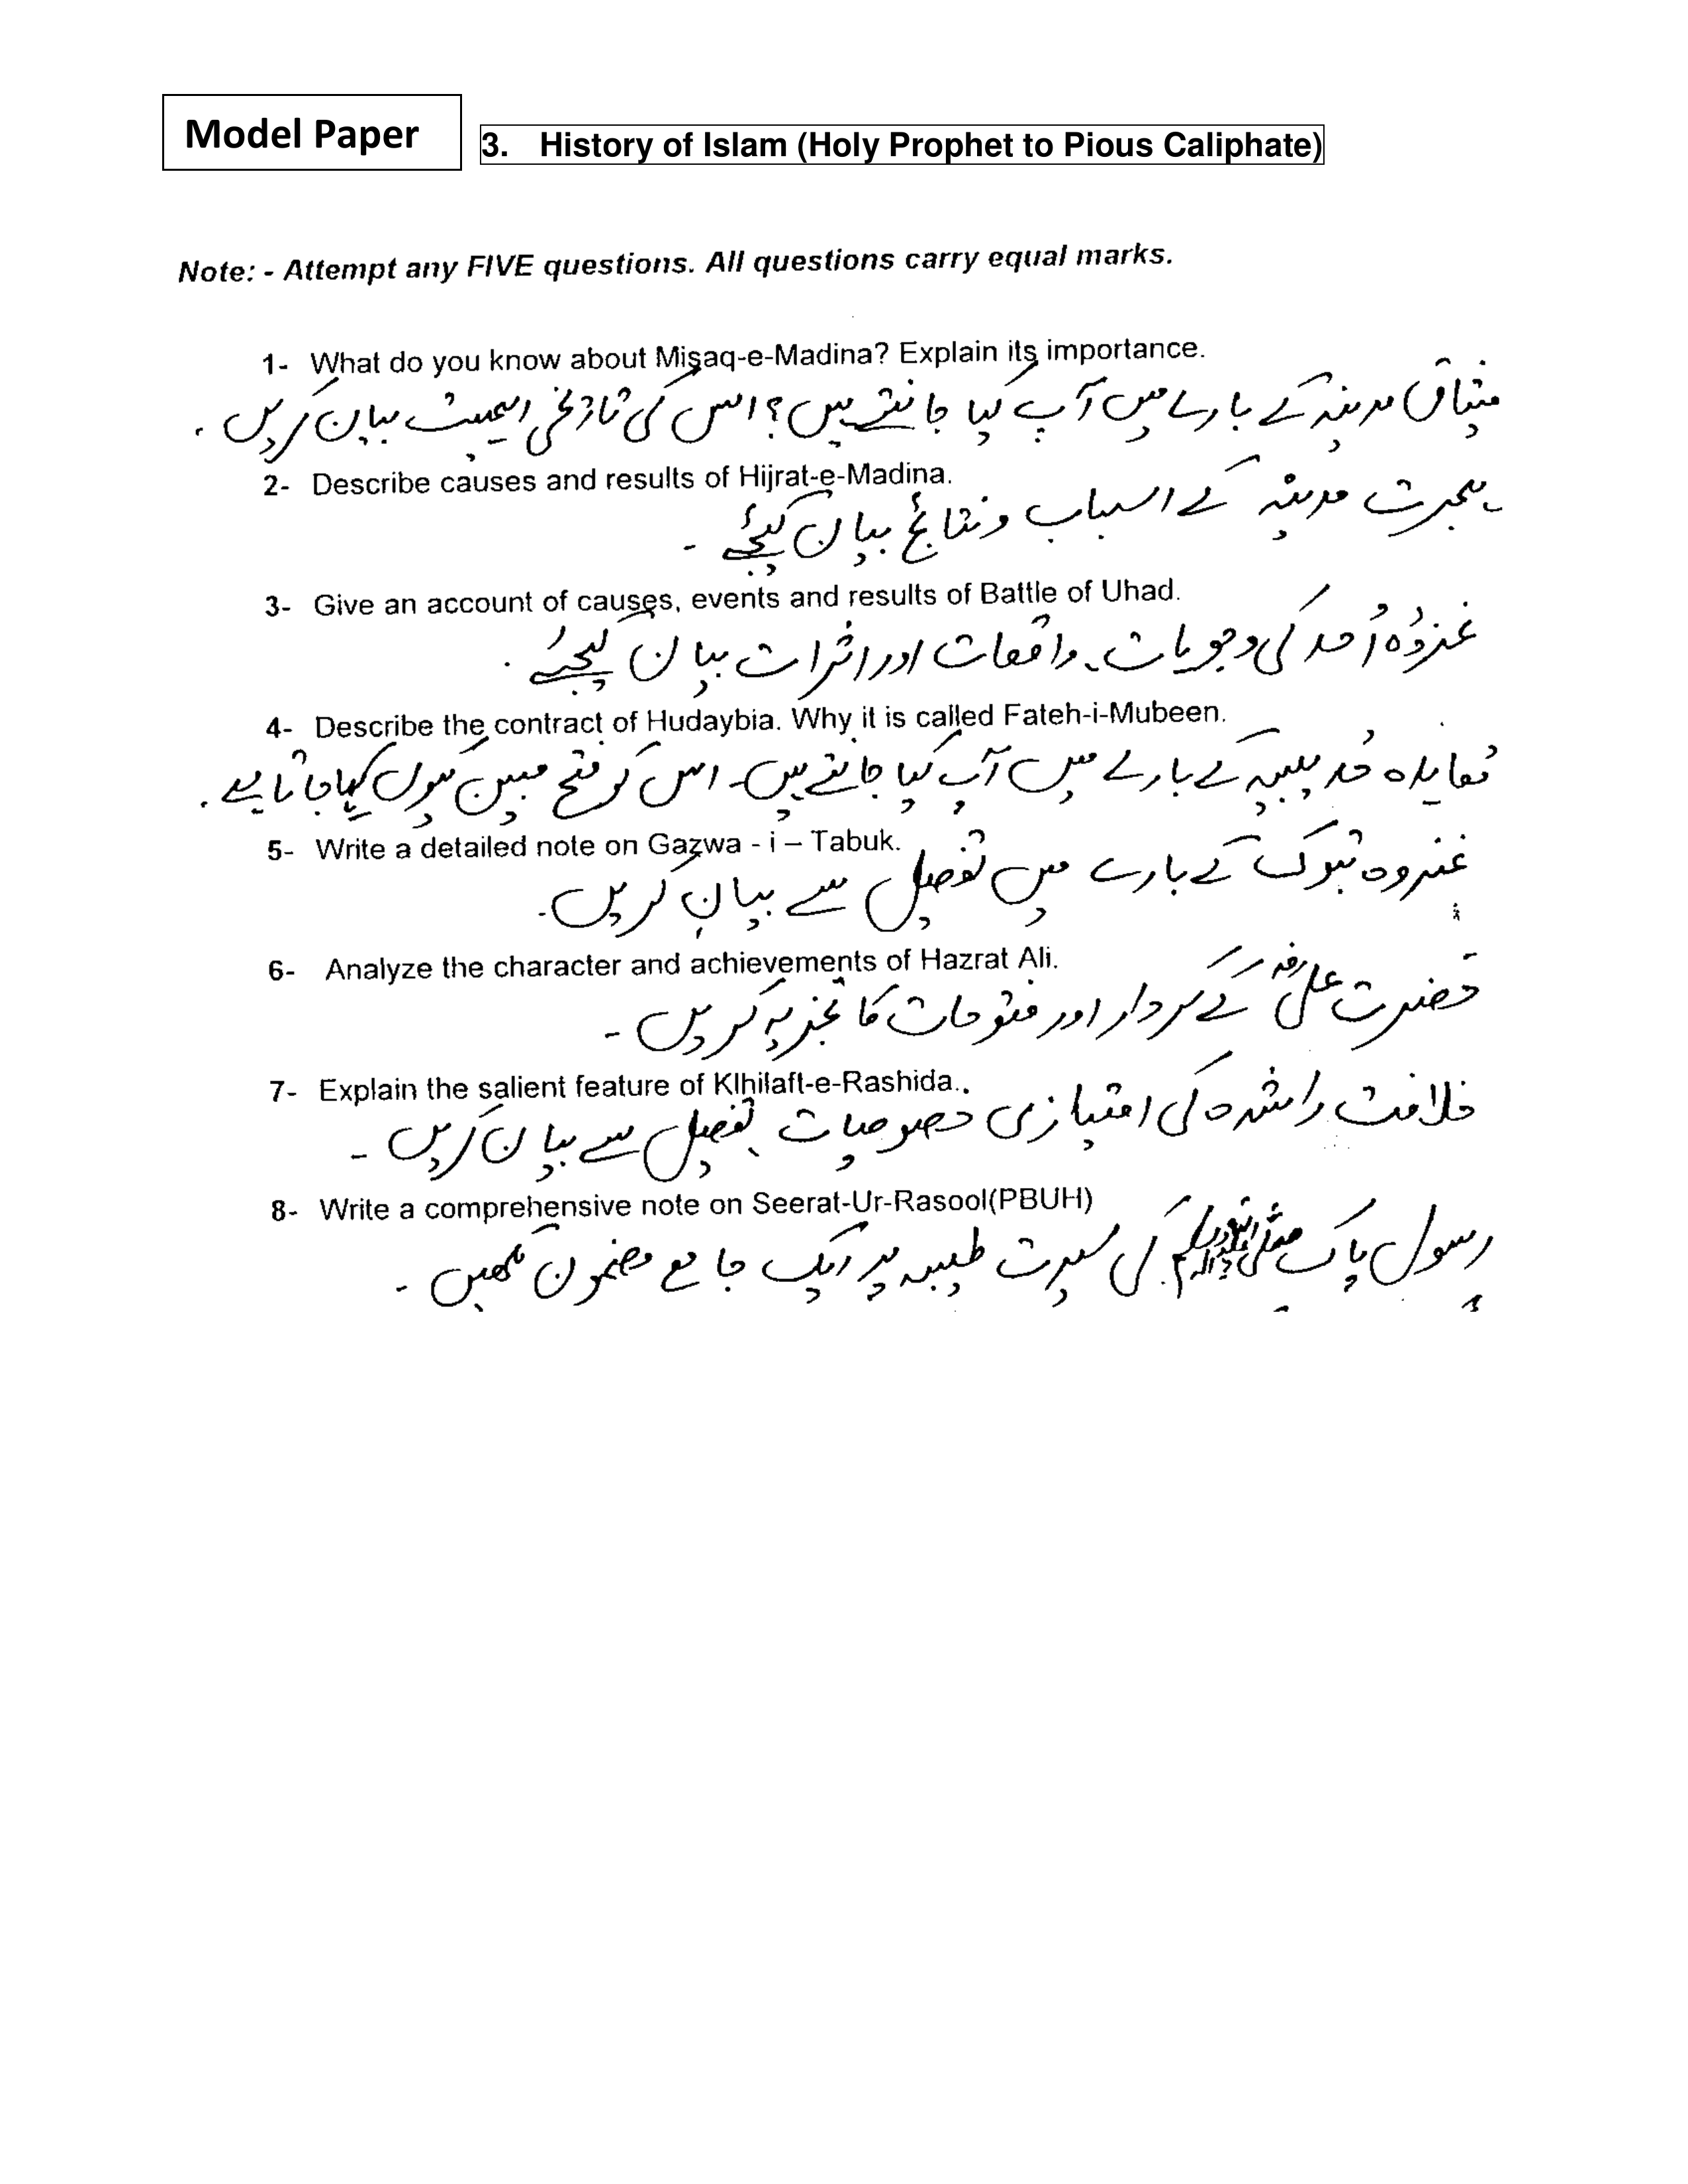 Model Paper
3. History of Islam (Holy Prophet to Pious Caliphate)
Note: - Attempt any FIVE questions. All questions carry equal marks.
1- What do you know about Misaq-e-Madina? Explain its importance.
میثاق مدینہ کے بارے میں آپ کیا جانتے ہیں؟ اس کی تاریخی اہمیت بیان کریں۔
2- Describe causes and results of Hijrat-e-Madina.
ہجرت مدینہ کے اسباب و نتائج بیان کیجئے ۔
3- Give an account of causes, events and results of Battle of Uhad.
غزوہ اُحد کی وجوہات۔ واقعات اور اثرات بیان کیجئے۔
4- Describe the contract of Hudaybia. Why it is called Fateh-i-Mubeen.
مُعاہدہ حُدیبیہ کے بارے میں آپ کیا جانتے ہیں۔ اس کو فتح مبین کیوں کہا جاتا ہے۔
5- Write a detailed note on Gazwa - i – Tabuk.
غزوہ تبوک کے بارے میں تفصیل سے بیان کریں۔
6- Analyze the character and achievements of Hazrat Ali.
حضرت علیؓ کے کردار اور فتوحات کا تجزیہ کریں ۔
7- Explain the salient feature of Klhilaft-e-Rashida..
خلافت راشدہ کی امتیازی خصوصیات تفصیل سے بیان کریں ۔
8- Write a comprehensive note on Seerat-Ur-Rasool(PBUH)
رسول پاک کی سیرت طیبہ پر ایک جامع مضمون لکھیں ۔